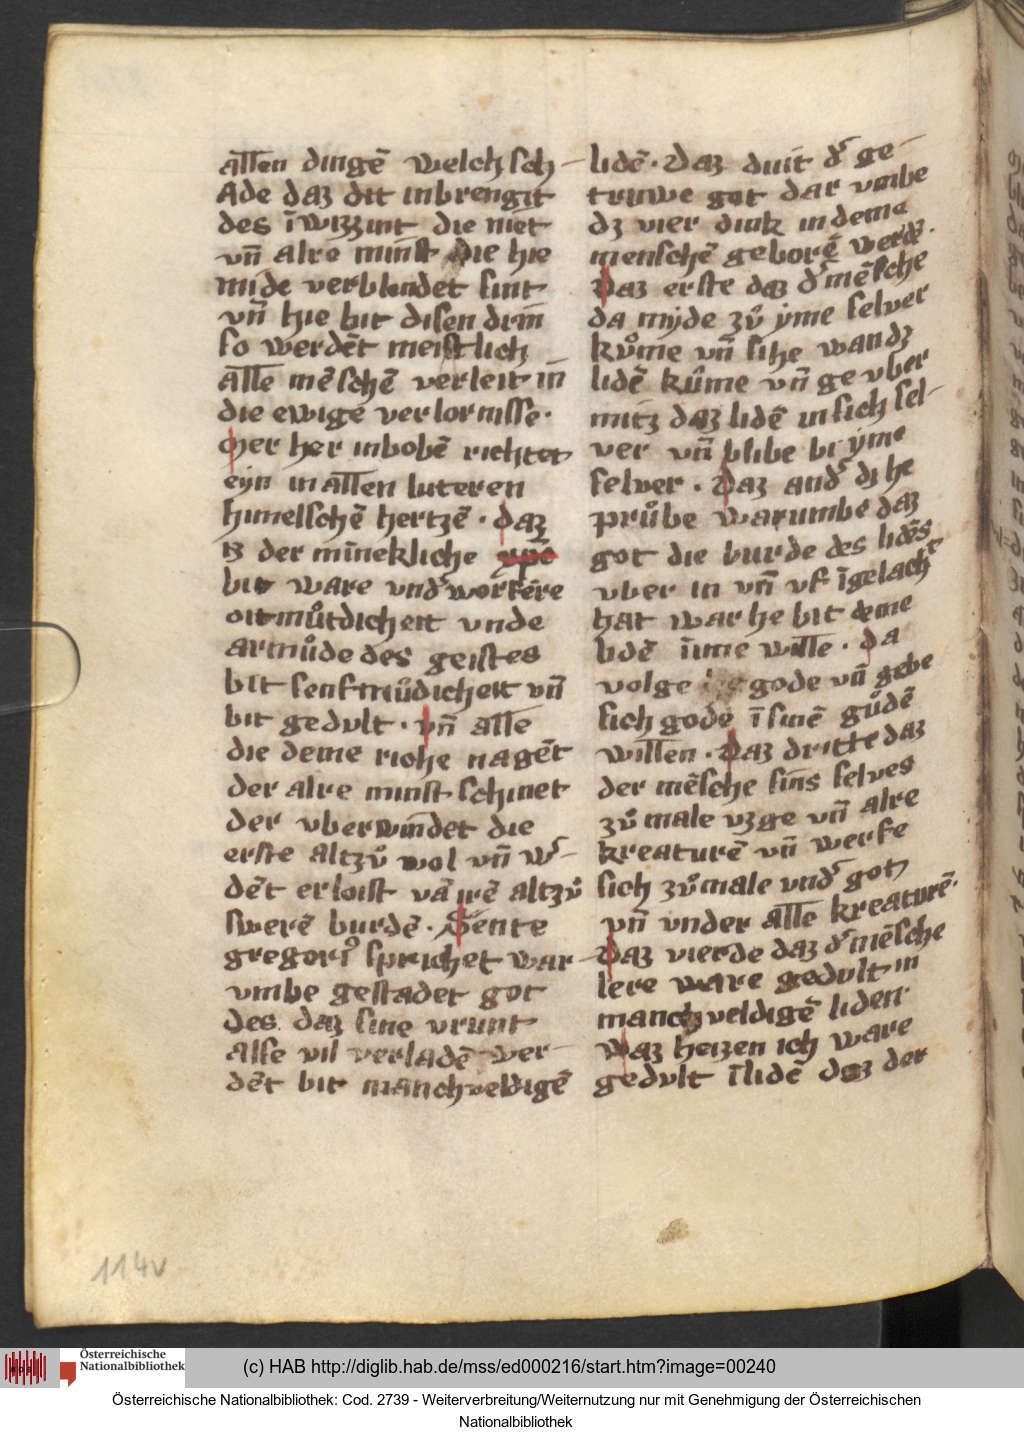 allen dingē welch sch-
Ade daʒ dit inbrengit
des īwiʒʒint die niet
vn̄ alre minst die hie
mide verblendet sint
vn̄ hie bit disen drin
so werdēt meistlich
alle mēschē verleit in
die ewige verlornisse.
Mer her inbobē richtet
eyn in allen luteren
himelschē hertzē. daʒ
iʒ der minekliche xpc̄
bit ware vnd' workēre
oitmůtdicheit vnde
armůde des geistes
bit senftmůdicheit vn̄
bit gedult. vn̄ alle
die deme riche nagēt
der alre minst schinet
der vberwindet die
erste altzů wol vn̄ w'-
dēt erloist vā irē altzů
swerē burdē. Sente
gregori' sprichet war-
vmbe gestadet got
des. daʒ sine vrunt
alse vil verladē wer-
dēt bit manchveldigē
lidē. Daʒ duit d' ge-
truwe got dar vmbe
dʒ vier dink in deme
menschē geborē werdē.
Daʒ erste daʒ d' mēsche
da mÿde zů ÿme selver
kůme vn̄ sihe wandʒ
lidē kůme vn̄ ge vber
mitz daʒ lidē in sich sel-
ver vn̄ blibe bi ÿme
selver. Daʒ and' dʒ he
průbe warumbe daʒ
got die burde des lidēs
vber in vn̄ vf īgelacht
hat war he bit deme
lidē ime wille. da
volge gode vn̄ gebe
sich gode ī sinē gůdē
willen. Daʒ dritte daʒ
der mēsche sins selves
zůmale vʒge vn̄ alre
kreaturē vn̄ werfe
sich zůmale vnd' gotʒ
vn̄ vnder alle kreaturē.
Daʒ vierde daʒ d' mēsche
lere ware gedult in
manchveldigē liden.
Waʒ heizen ich ware
gedult ī lidē daʒ der
114v
Österreichische
Nationalbibliothek
(c) HAB http://diglib.hab.de/mss/ed000216/start.htm?image=00240
Österreichische Nationalbibliothek: Cod. 2739 - Weiterverbreitung/Weiternutzung nur mit Genehmigung der Österreichischen
Nationalbibliothek